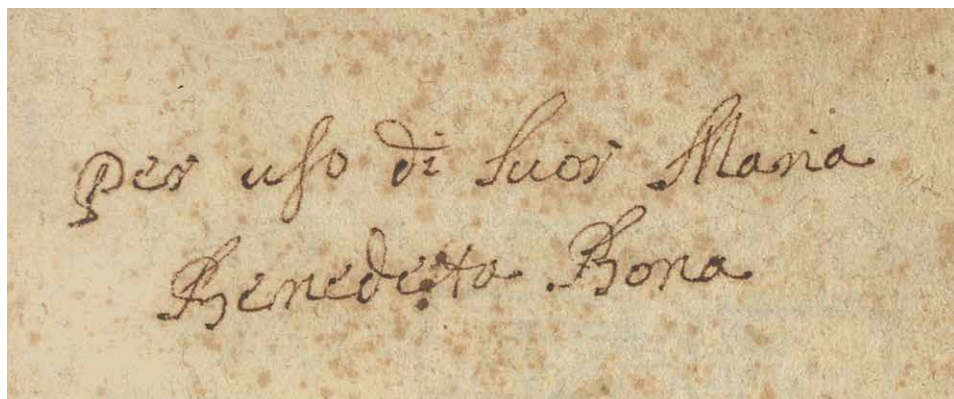 Per uso di Suor Maria
Benedetta Bona